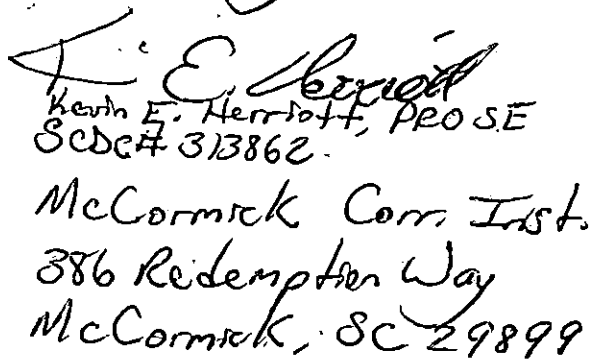 K. E. Herriott
Kevin E. Herriott, PRO SE
SCDC# 313862.
McCormick Corr. Inst.
386 Redemption Way
McCormick, SC 29899